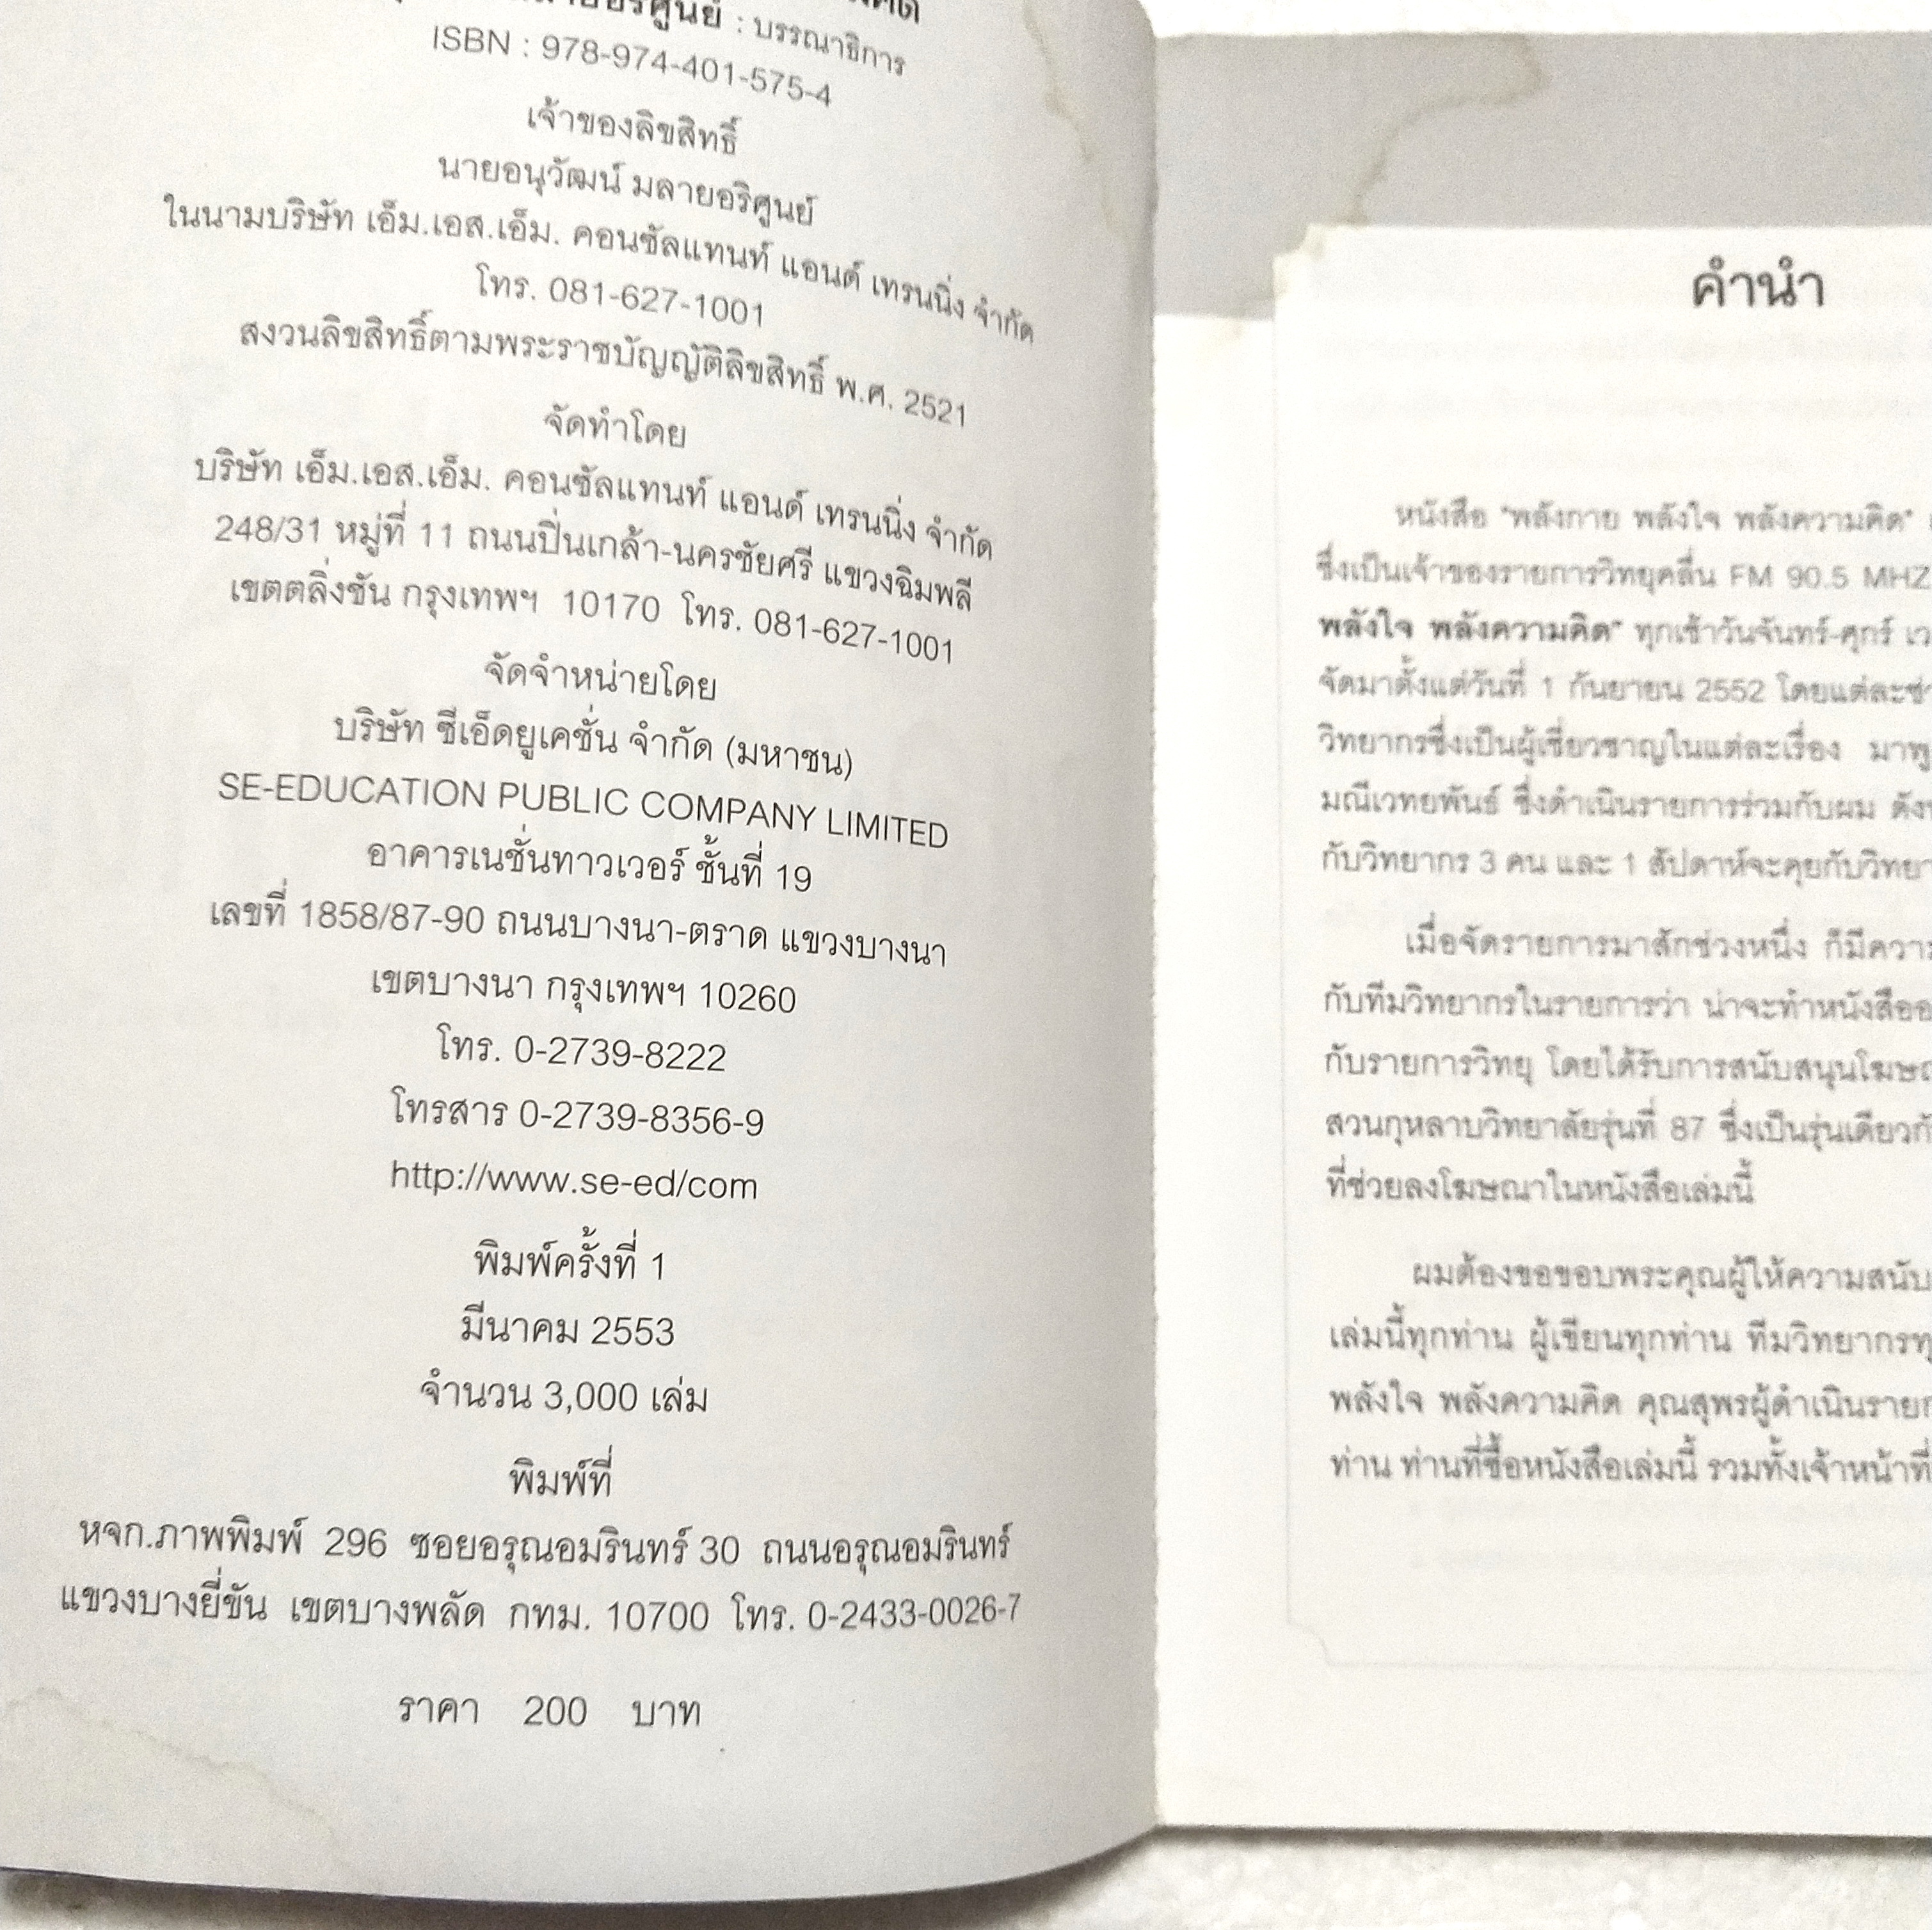 อริศูนย์ : บรรณาธิการ
ISBN : 978-974-401-575-4
เจ้าของลิขสิทธิ์
นายอนุวัฒน์ มลายอริศูนย์
ในนามบริษัท เอ็ม.เอส.เอ็ม. คอนซัลแทนท์ แอนด์ เทรนนิ่ง จำกัด
โทร. 081-627-1001
สงวนลิขสิทธิ์ตามพระราชบัญญัติลิขสิทธิ์ พ.ศ. 2521
จัดทำโดย
บริษัท เอ็ม.เอส.เอ็ม. คอนซัลแทนท์ แอนด์ เทรนนิ่ง จำกัด
248/31 หมู่ที่ 11 ถนนปิ่นเกล้า-นครชัยศรี แขวงฉิมพลี
เขตตลิ่งชัน กรุงเทพฯ 10170 โทร. 081-627-1001
จัดจำหน่ายโดย
บริษัท ซีเอ็ดยูเคชั่น จำกัด (มหาชน)
SE-EDUCATION PUBLIC COMPANY LIMITED
อาคารเนชั่นทาวเวอร์ ชั้นที่ 19
เลขที่ 1858/87-90 ถนนบางนา-ตราด แขวงบางนา
เขตบางนา กรุงเทพฯ 10260
โทร. 0-2739-8222
โทรสาร 0-2739-8356-9
http://www.se-ed/com
พิมพ์ครั้งที่ 1
มีนาคม 2553
จำนวน 3,000 เล่ม
พิมพ์ที่
หจก.ภาพพิมพ์ 296 ซอยอรุณอมรินทร์ 30 ถนนอรุณอมรินทร์
แขวงบางยี่ขัน เขตบางพลัด กทม. 10700 โทร. 0-2433-0026-7
ราคา 200 บาท
คำนำ
หนังสือ "พลังกาย พลังใจ พลังความคิด"
ซึ่งเป็นเจ้าของรายการวิทยุคลื่น FM 90.5 MHZ
พลังใจ พลังความคิด" ทุกเช้าวันจันทร์-ศุกร์ เว
จัดมาตั้งแต่วันที่ 1 กันยายน 2552 โดยแต่ละช่ว
วิทยากรซึ่งเป็นผู้เชี่ยวชาญในแต่ละเรื่อง มาพู
มณีเวทยพันธ์ ซึ่งดำเนินรายการร่วมกับผม ดัง
กับวิทยากร 3 คน และ 1 สัปดาห์จะคุยกับวิทยา
เมื่อจัดรายการมาสักช่วงหนึ่ง ก็มีควา
กับทีมวิทยากรในรายการว่า น่าจะทำหนังสืออ
กับรายการวิทยุ โดยได้รับการสนับสนุนโฆษณ
สวนกุหลาบวิทยาลัยรุ่นที่ 87 ซึ่งเป็นรุ่นเดียวกั
ที่ช่วยลงโฆษณาในหนังสือเล่มนี้
ผมต้องขอขอบพระคุณผู้ให้ความสนับ
เล่มนี้ทุกท่าน ผู้เขียนทุกท่าน ทีมวิทยากรทุ
พลังใจ พลังความคิด คุณสุพรผู้ดำเนินรายก
ท่าน ท่านที่ซื้อหนังสือเล่มนี้ รวมทั้งเจ้าหน้าที่